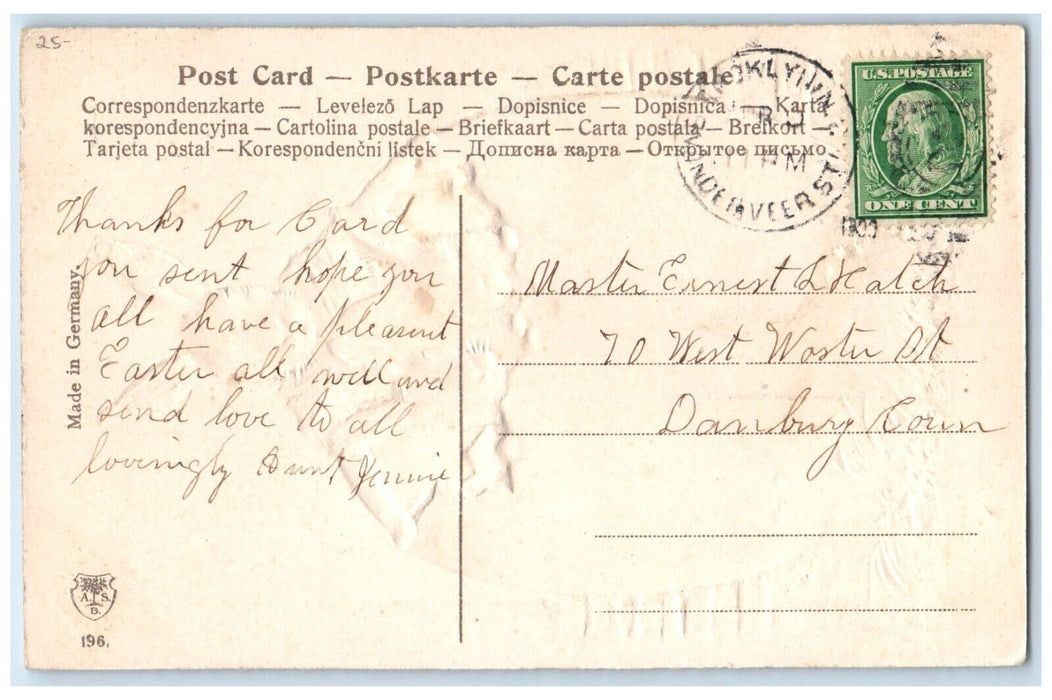 25-
Post Card — Postkarte — Carte postale
Correspondenzkarte — Levelező Lap — Dopisnice — Dopisnica — Karta
korespondencyjna — Cartolina postale — Briefkaart — Carta postala — Brefkort —
Tarjeta postal — Korespondenčni listek — Дописна карта — Открытое письмо
BROOKLYN N.Y.
11 PM
VANDERVEER STA.
U.S. POSTAGE
ONE CENT
Thanks for Card
you sent hope you
all have a pleasent
Easter all well and
send love to all
lovingly Aunt Jennie
Made in Germany.
Master Ernest L Hatch
70 West Woster St
Danbury Conn
A. S.
B.
196.